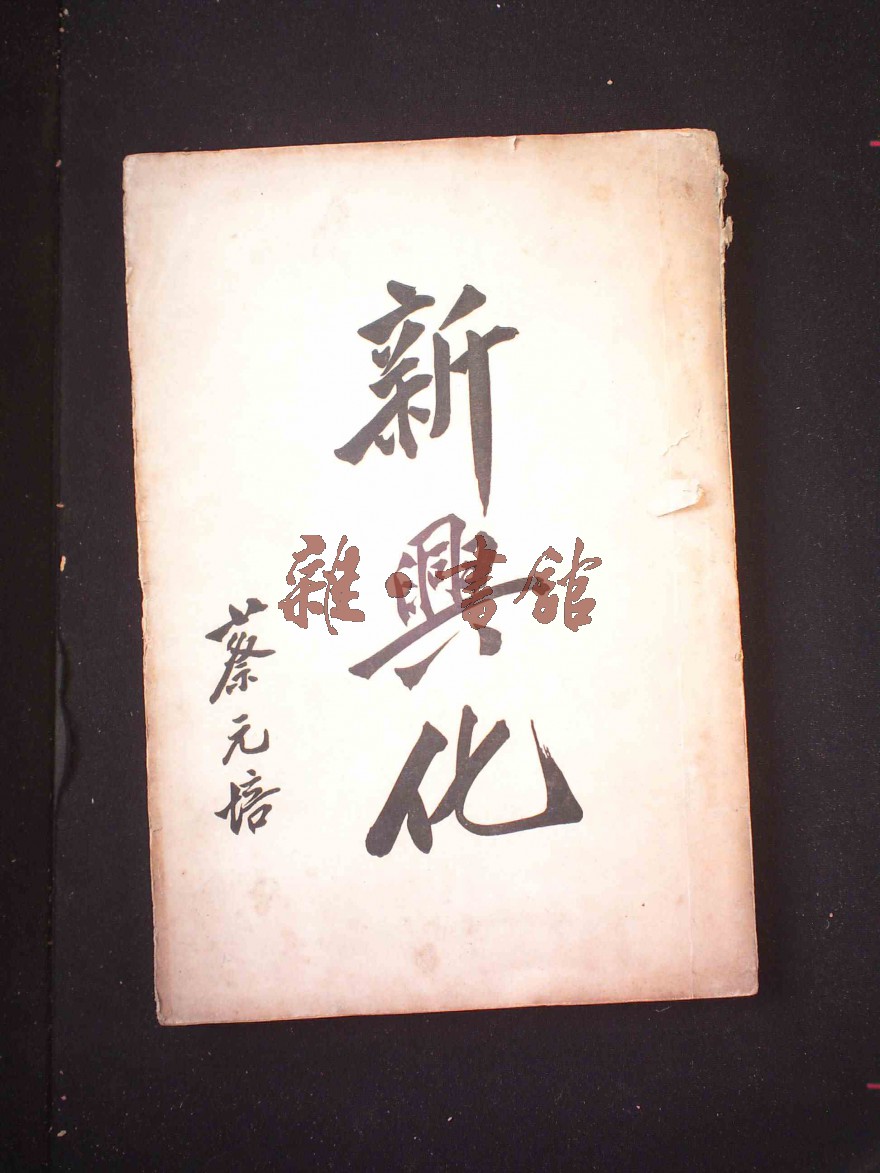 新興化
蔡元培
雜·書館